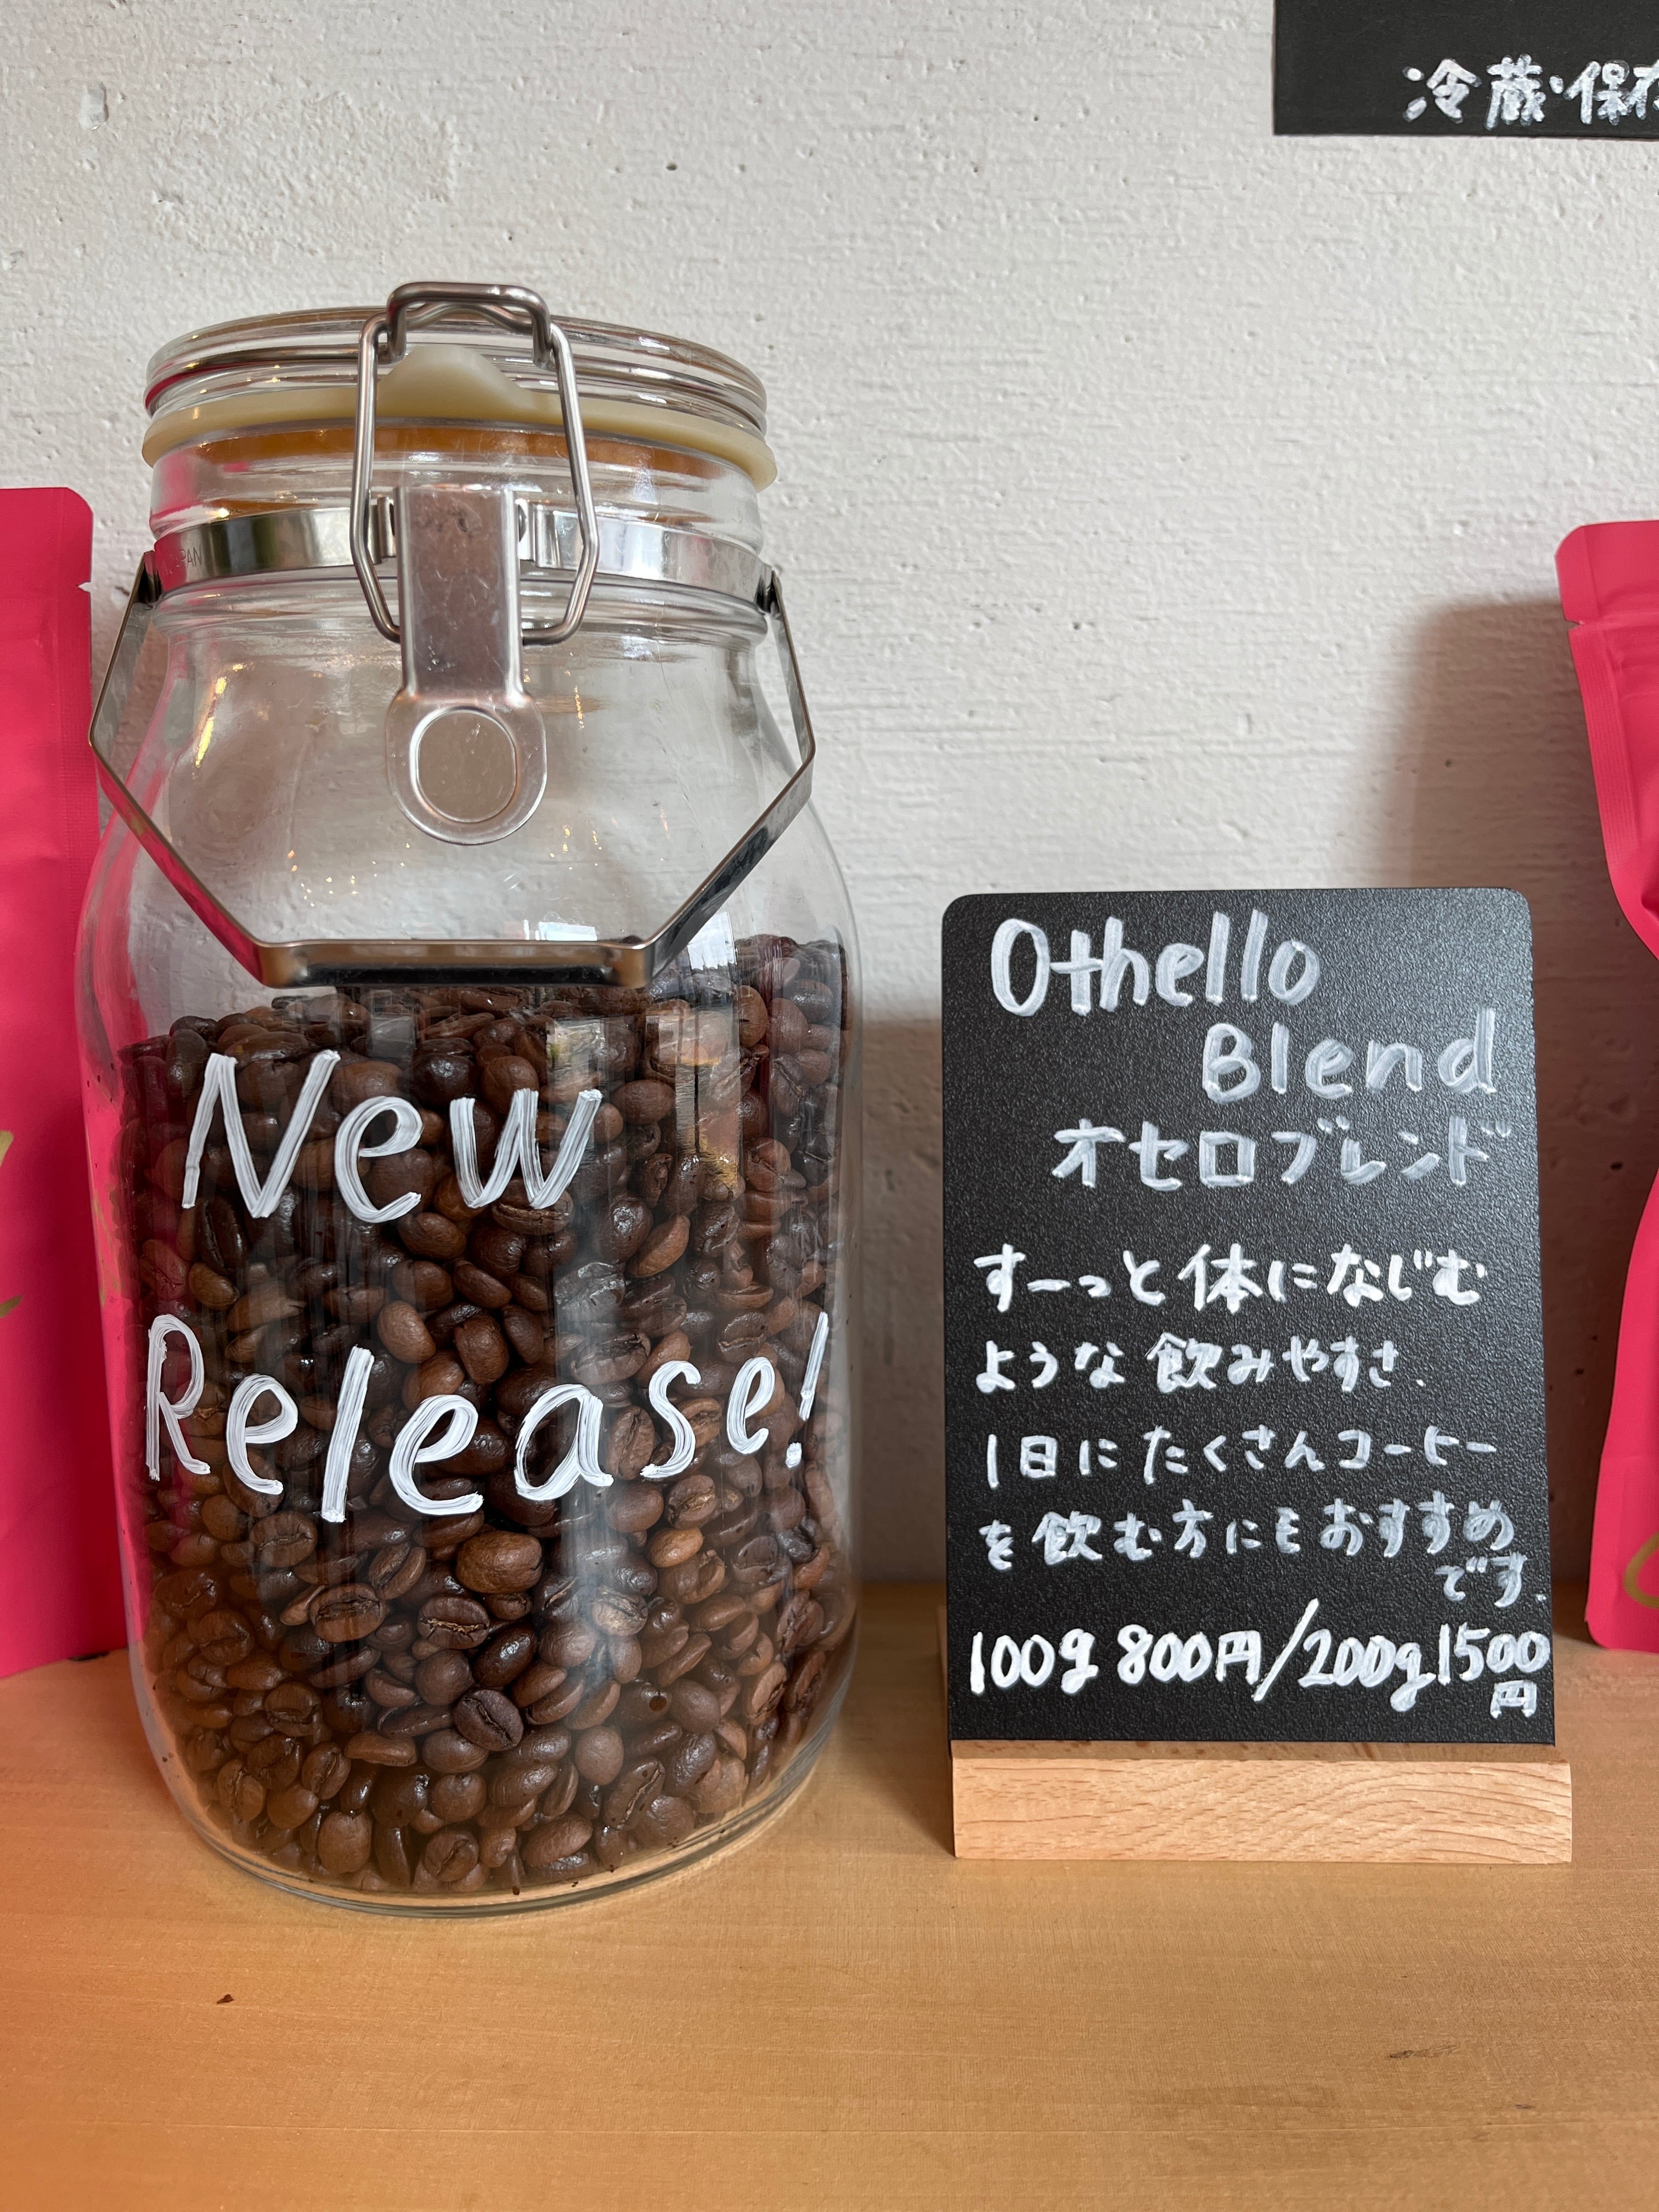 冷蔵・保存
New
Release!
Othello
Blend
オセロブレンド
すーっと体になじむ
ような飲みやすさ.
1日にたくさんコーヒー
を飲む方にもおすすめ
です.
100g 800円/200g 1500
円